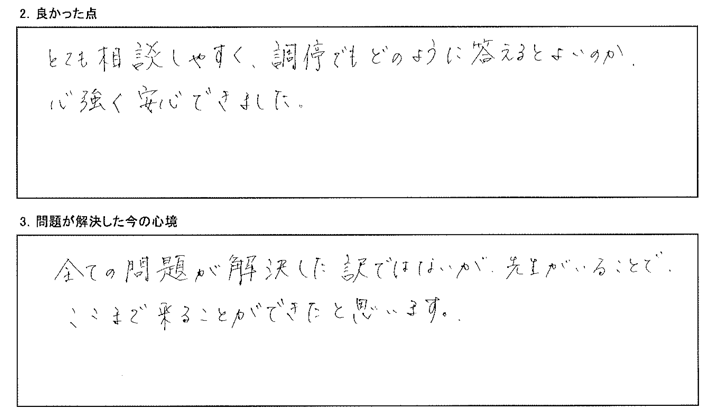 2. 良かった点
とても相談しやすく、調停でもどのように答えるとよいのか、
心強く安心できました。
3. 問題が解決した今の心境
全ての問題が解決した訳ではないが、先生がいることで、
ここまで来ることができたと思います。